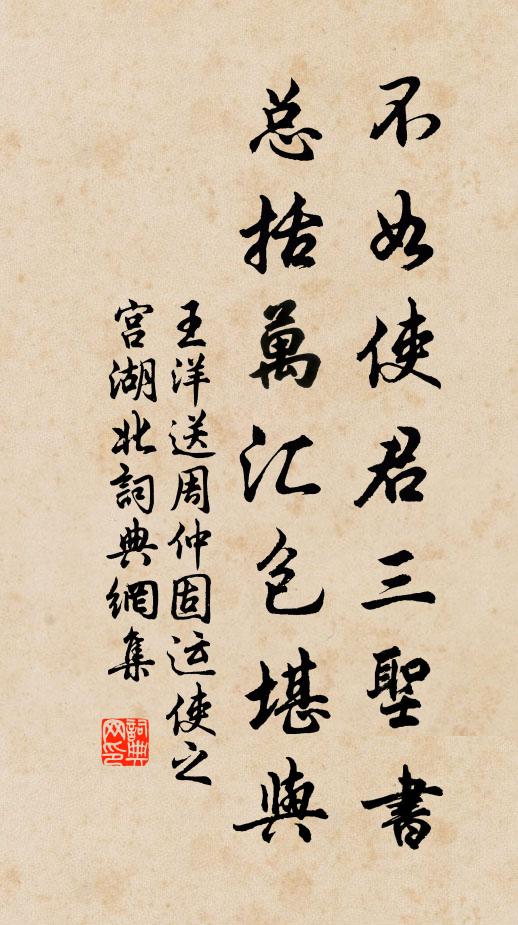 不如使君三聖書
总括萬汇包堪輿
王洋送周仲固运使之
宫湖北詞典網集
詞典网印